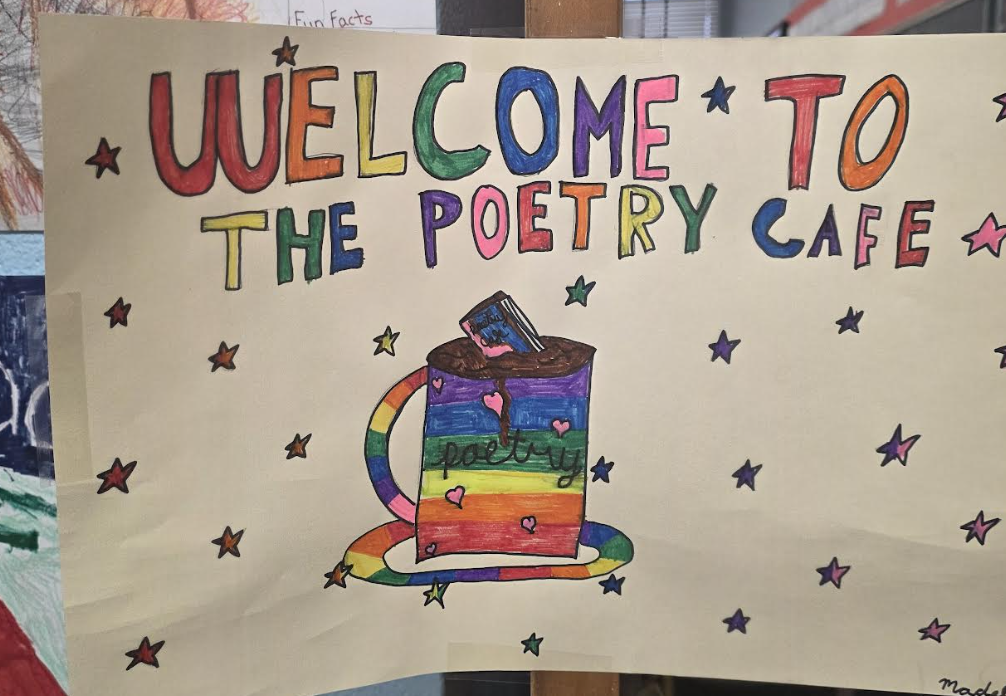 Fun Facts
WELCOME TO
THE POETRY CAFE
poetry